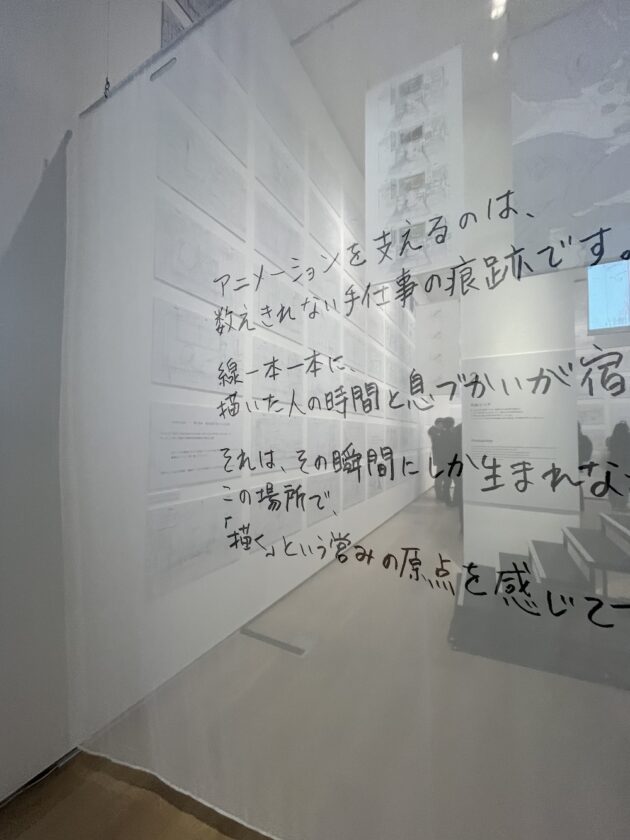 アニメーションを支えるのは、
数えきれない手仕事の痕跡です。
線一本一本に、
描いた人の時間と息づかいが宿
それは、その瞬間にしか生まれな
この場所で、
「描く」という営みの原点を感じて